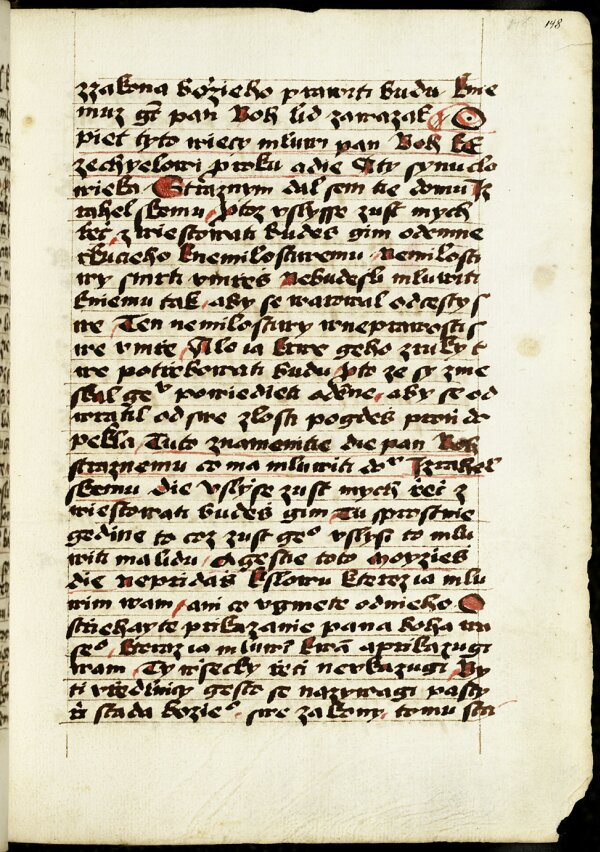 148
zzakona božieho prawiti budu knie
muz gt pan Boh lid zawazal O
piet tyto wiecy mluwi pan Boh k E
zechyelowi proku a die A ty synu clo
wieka Strážnym dal sem tie domu Iz
rahelskemu ptoz vslysse z ust mych
řeč zwiestowati budes gim odemne
rkucieho k nemilostiwemu nemilosti
wy smrti vmřes Nebudesli mluwiti
k niemu tak aby se warowal od cesty s
we Ten nemilostiwy w neprawosti s
we vmře Alo ia krwe geho z ruky t
we potrebowati budu pto ze sy zme
skal geᵒ powiedieti odemne aby se od
wratil od swe zlosti pogdes proň do
pekla Tuto znamenitie die pan Boh
straznemu co ma mluwiti domu Izrahel
skemu die vslyse z ust mych řeč z
wiestowati budes gim Tu sprostnie
gedine to coz z ust geᵒ vslysi to mlu
witi ma lidu A gestie toto Moyzies
die nepridas k slowu kterez ia mlu
wim wam ani co vgmete od nieho O
střiehayte prikazanie pana boha wa
seᵒ kteraz ia mluwi k wam a prikazugi
wam Ty wsecky řeci neukazugi By
ti vředlnicy gesto se nazywagi pasty
ři stada božieᵒ swe zakony tomu sta